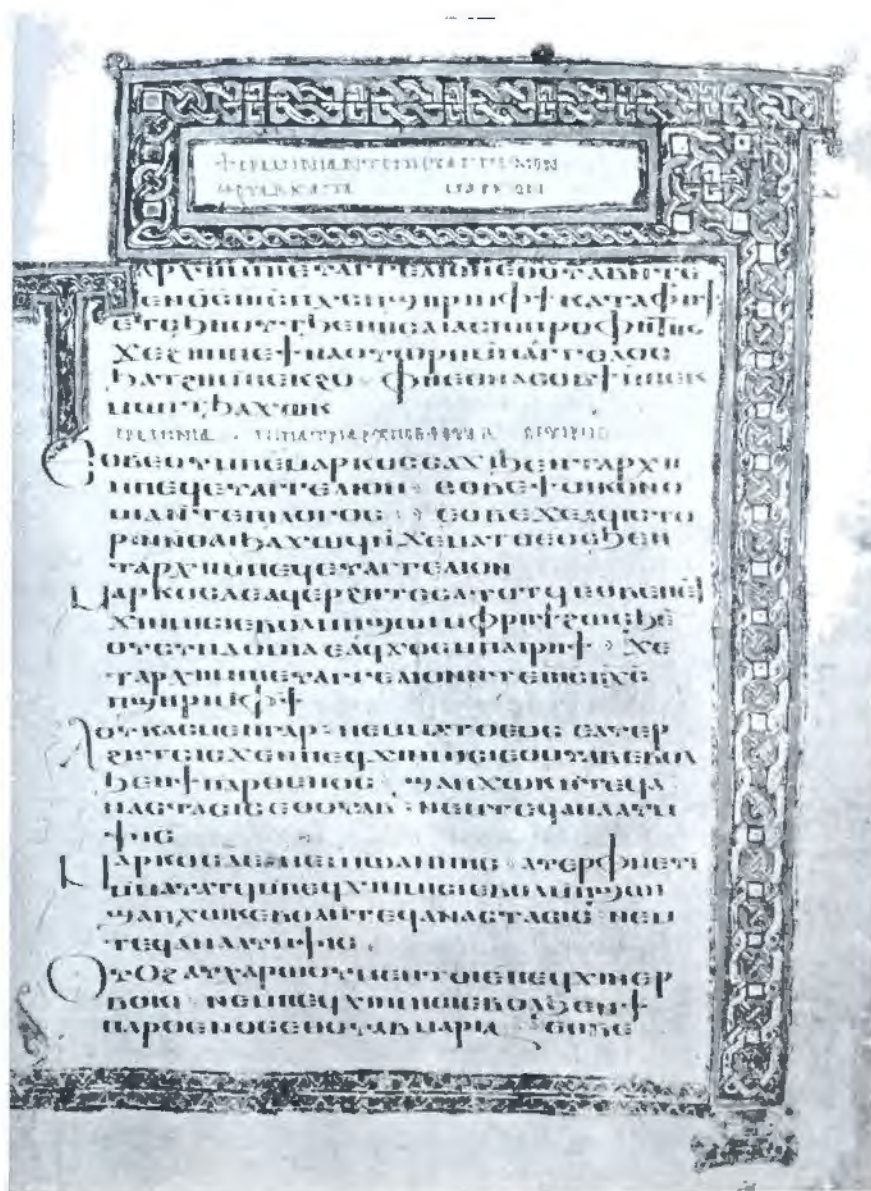 ϯⲉⲣⲙⲏⲛⲓⲁⲛⲧⲉⲡⲓⲉⲩⲁⲅⲅⲉⲗⲓⲟⲛ
ⲉⲑⲟⲩⲁⲃⲕⲁⲧⲁ
ⲧⲁⲣⲭⲏⲙⲡⲉⲩⲁⲅⲅⲉⲗⲓⲟⲛⲉⲑⲟⲩⲁⲃⲛⲧⲉ
ⲓⲏⲥⲡⲭⲥⲡϣⲏⲣⲓⲙⲫϯⲕⲁⲧⲁⲫⲣⲏϯ
ⲉⲧⲥϧⲏⲟⲩⲧϧⲉⲛⲏⲥⲁⲓⲁⲥⲡⲓⲡⲣⲟⲫⲏⲧⲏⲥ
ϫⲉϩⲏⲡⲡⲉϯⲛⲁⲟⲩⲱⲣⲡⲙⲡⲁⲁⲅⲅⲉⲗⲟⲥ
ϧⲁⲧϩⲏⲙⲡⲉⲕϩⲟ · ⲫⲏⲉⲑⲛⲁⲥⲟⲃϯⲙⲡⲉⲕ
ⲙⲱⲓⲧϧⲁϫⲱⲕ
ⲉⲣⲙⲏⲛⲓⲁ
ⲉⲑⲃⲉⲟⲩⲙⲡⲉⲙⲁⲣⲕⲟⲥⲥⲁϫⲓϧⲉⲛⲧⲁⲣⲭⲏ
ⲙⲡⲉϥⲉⲩⲁⲅⲅⲉⲗⲓⲟⲛ · ⲉⲑⲃⲉϯⲟⲓⲕⲟⲛⲟ
ⲙⲓⲁⲛⲧⲉⲡⲓⲗⲟⲅⲟⲥ · ⲉⲑⲃⲉϫⲉⲁϥⲓⲥⲧⲟ
ⲣⲓⲛⲙⲙⲟⲥϧⲁϫⲱϥⲛϫⲉⲙⲁⲧⲑⲉⲟⲥϧⲉⲛ
ⲧⲁⲣⲭⲏⲙⲡⲉϥⲉⲩⲁⲅⲅⲉⲗⲓⲟⲛ
ⲙⲁⲣⲕⲟⲥⲇⲉⲁϥⲉⲣϩⲏⲧⲥⲥⲁⲧⲟⲧϥⲉⲑⲃⲉⲡⲉϥ
ϫⲓⲛⲙⲓⲥⲓⲉⲃⲟⲗⲙⲡϣⲱⲓⲙⲫⲣⲏϯϩⲱⲥϧⲉⲛ
ⲟⲩⲥⲩⲛⲇⲟⲙⲓⲁⲉⲁϥϫⲟⲥⲙⲡⲁⲓⲣⲏϯ · ϫⲉ
ⲧⲁⲣⲭⲏⲙⲡⲉⲩⲁⲅⲅⲉⲗⲓⲟⲛⲛⲧⲉⲓⲏⲥⲡⲭⲥ
ⲡϣⲏⲣⲓⲙⲫϯ
ⲗⲟⲩⲕⲁⲥⲙⲉⲛⲅⲁⲣ · ⲛⲉⲙⲙⲁⲧⲑⲉⲟⲥⲉⲁⲩⲉⲣ
ϩⲏⲧⲥⲓⲥϫⲉⲛⲡⲉϥϫⲓⲛⲙⲓⲥⲓⲉⲑⲟⲩⲁⲃⲉⲃⲟⲗ
ϧⲉⲛϯⲡⲁⲣⲑⲉⲛⲟⲥ · ϣⲁⲡϫⲱⲕⲛⲧⲉϥⲁ
ⲛⲁⲥⲧⲁⲥⲓⲥⲉⲑⲟⲩⲁⲃ · ⲛⲉⲙⲧⲉϥⲁⲛⲁⲗⲩⲙ
ⲯⲓⲥ
ⲙⲁⲣⲕⲟⲥⲇⲉⲛⲉⲙⲓⲱⲁⲛⲛⲏⲥ · ⲁⲩⲉⲣⲫⲙⲉⲩⲓ
ⲙⲙⲁⲩⲁⲧϥⲙⲡⲉϥϫⲓⲛⲙⲓⲥⲓⲉⲃⲟⲗⲙⲡϣⲱⲓ
ϣⲁⲡϫⲱⲕⲉⲃⲟⲗⲛⲧⲉϥⲁⲛⲁⲥⲧⲁⲥⲓⲥ · ⲛⲉⲙ
ⲧⲉϥⲁⲛⲁⲗⲩⲙⲯⲓⲥ
ⲟⲩⲟϩⲁⲩⲭⲁⲣⲱⲟⲩⲙⲉⲛⲧⲟⲓⲉⲡⲉϥϫⲓⲛⲉⲣ
ⲃⲟⲕⲓ · ⲛⲉⲙⲡⲉϥϫⲓⲛⲙⲓⲥⲓⲉⲃⲟⲗϧⲉⲛϯ
ⲡⲁⲣⲑⲉⲛⲟⲥⲉⲑⲟⲩⲁⲃⲙⲁⲣⲓⲁ · ⲉⲑⲃⲉ